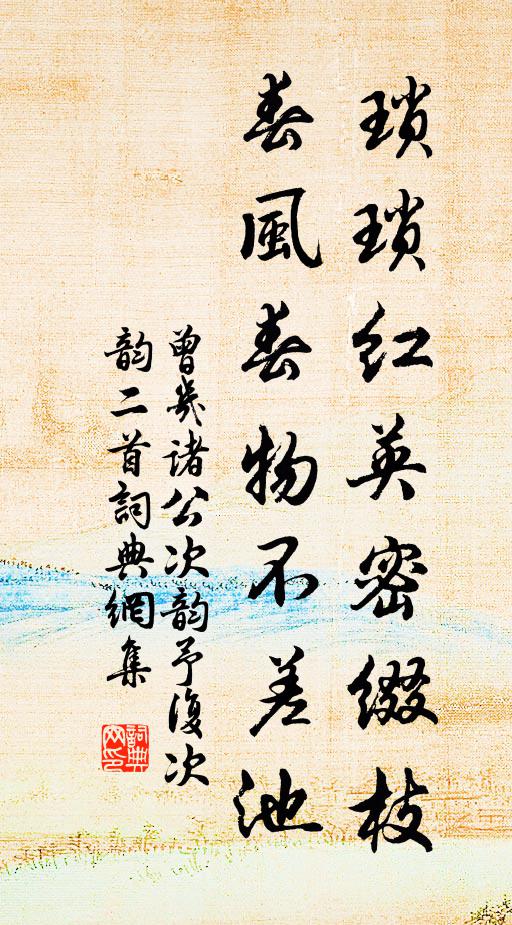 瑣瑣紅英密綴枝
春風春物不差池
曾幾諸公次韵予復次
韵二首詞典網集
詞典
网印